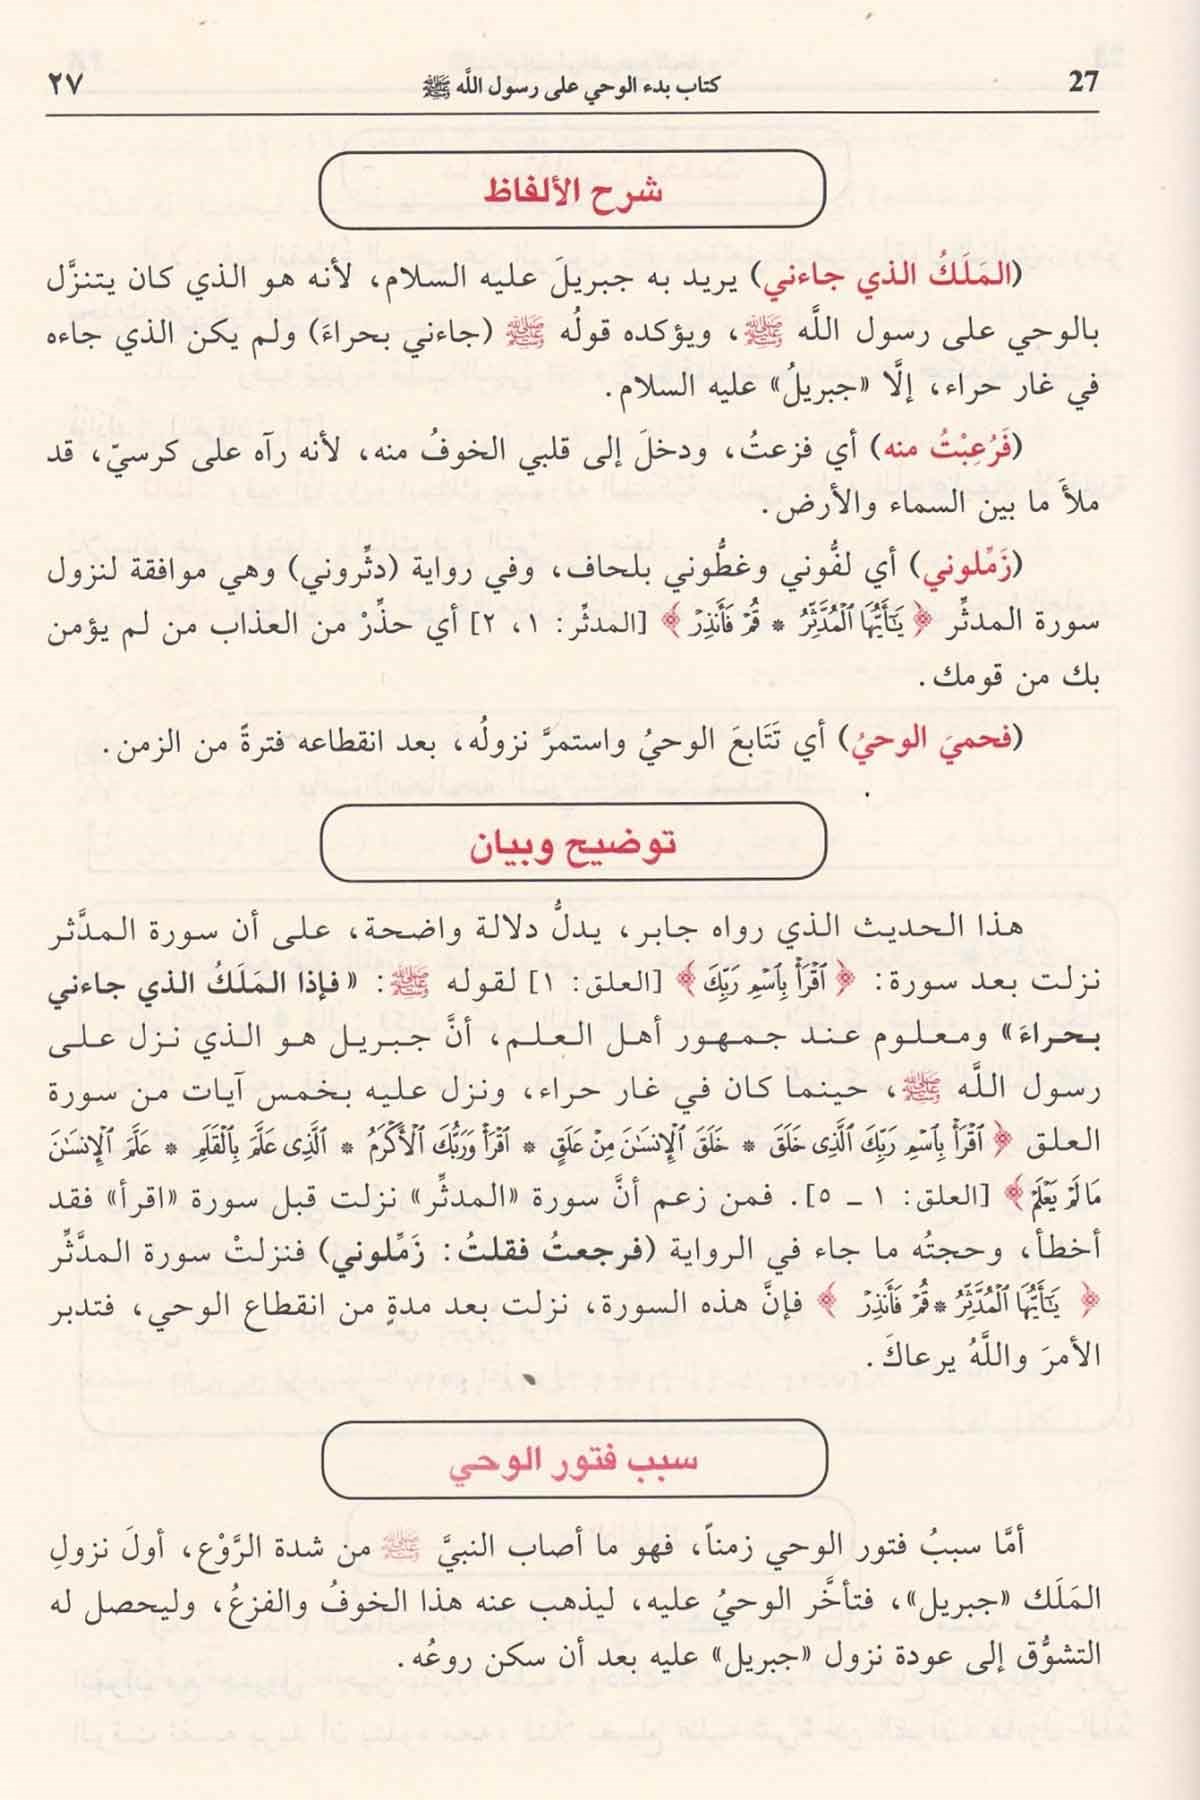 27 كتاب بدء الوحي على رسول اللَّه ﷺ ٢٧
شرح الألفاظ
(المَلَكُ الذي جاءني) يريد به جبريلَ عليه السلام، لأنه هو الذي كان يتنزَّل
بالوحي على رسول اللَّه ﷺ، ويؤكده قولُه ﷺ (جاءني بحراءَ) ولم يكن الذي جاءه
في غار حراء، إلَّا «جبريلُ» عليه السلام.
(فَرُعِبْتُ منه) أي فزعتُ، ودخلَ إلى قلبي الخوفُ منه، لأنه رآه على كرسيّ، قد
ملأَ ما بين السماء والأرض.
(زَمِّلوني) أي لفُّوني وغطُّوني بلحاف، وفي رواية (دثِّروني) وهي موافقة لنزول
سورة المدثِّر ﴿يَٰٓأَيُّهَا ٱلْمُدَّثِّرُ * قُمْ فَأَنذِرْ﴾ [المدثِّر: ١، ٢] أي حذِّرْ من العذاب من لم يؤمن
بك من قومك.
(فحميَ الوحيُ) أي تَتَابعَ الوحيُ واستمرَّ نزولُه، بعد انقطاعه فترةً من الزمن.
توضيح وبيان
هذا الحديث الذي رواه جابر، يدلُّ دلالة واضحة، على أن سورة المدَّثر
نزلت بعد سورة: ﴿ٱقْرَأْ بِٱسْمِ رَبِّكَ﴾ [العلق: ١] لقوله ﷺ: «فإذا المَلَكُ الذي جاءني
بحراءَ» ومعلوم عند جمهور أهل العلم، أنَّ جبريل هو الذي نزل على
رسول اللَّه ﷺ، حينما كان في غار حراء، ونزل عليه بخمس آيات من سورة
العلق ﴿ٱقْرَأْ بِٱسْمِ رَبِّكَ ٱلَّذِى خَلَقَ * خَلَقَ ٱلْإِنسَٰنَ مِنْ عَلَقٍ * ٱقْرَأْ وَرَبُّكَ ٱلْأَكْرَمُ * ٱلَّذِى عَلَّمَ بِٱلْقَلَمِ * عَلَّمَ ٱلْإِنسَٰنَ
مَا لَمْ يَعْلَمْ﴾ [العلق: ١ ـ ٥]. فمن زعم أنَّ سورة «المدثِّر» نزلت قبل سورة «اقرأ» فقد
أخطأ، وحجتُه ما جاء في الرواية (فرجعتُ فقلتُ: زَمِّلوني) فنزلتْ سورة المدَّثِّر
﴿يَٰٓأَيُّهَا ٱلْمُدَّثِّرُ * قُمْ فَأَنذِرْ﴾ فإنَّ هذه السورة، نزلت بعد مدةٍ من انقطاع الوحي، فتدبر
الأمرَ واللَّهُ يرعاكَ.
سبب فتور الوحي
أمَّا سببُ فتور الوحي زمناً، فهو ما أصاب النبيَّ ﷺ من شدة الرَّوْع، أولَ نزولِ
المَلَك «جبريل»، فتأخَّر الوحيُ عليه، ليذهب عنه هذا الخوفُ والفزعُ، وليحصل له
التشوُّق إلى عودة نزول «جبريل» عليه بعد أن سكن روعُه.